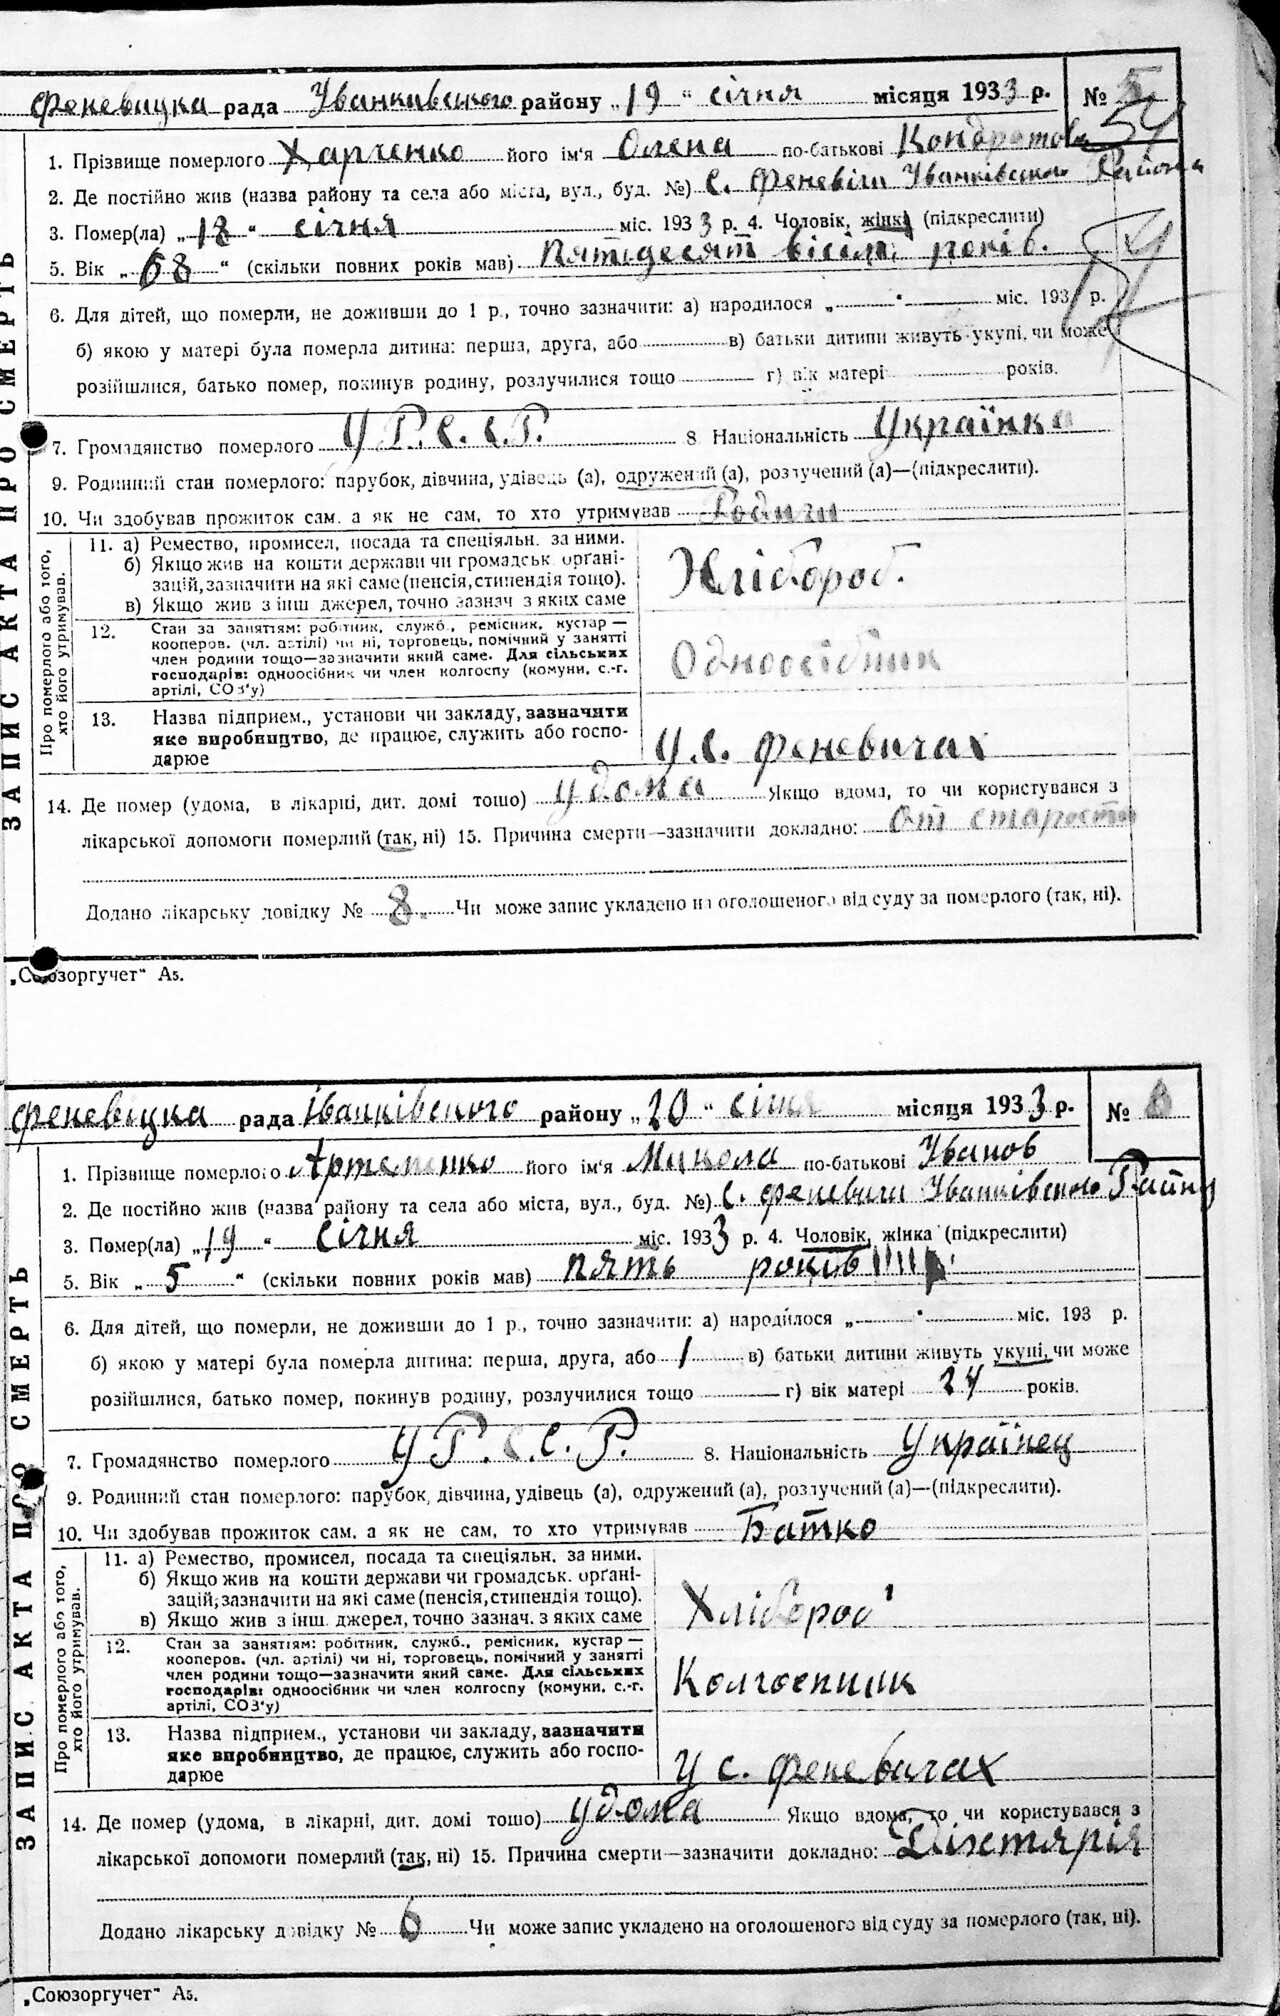 Феневицка рада Уванкивського району „19“ січня місяця 1933 р. № 5
54
1. Прізвище померлого Харченко його ім'я Олена по-батькові Кондротова
2. Де постійно жив (назва району та села або міста, вул., буд. №) с. Феневичи Уванківського Района
3. Помер(ла) „18“ січня міс. 1933 р. 4. Чоловік, жінка (підкреслити)
5. Вік „68“ (скільки повних років мав) пятдесят вісім років.
6. Для дітей, що померли, не доживши до 1 р., точно зазначити: а) народилося „ “ міс. 193 р.
б) якою у матері була померла дитина: перша, друга, або в) батьки дитини живуть укупі, чи може
розійшлися, батько помер, покинув родину, розлучилися тощо г) вік матері років.
7. Громадянство померлого У.Р.С.С.Р. 8. Національність Українка
9. Родинний стан померлого: парубок, дівчина, удівець (а), одружений (а), розлучений (а)—(підкреслити).
10. Чи здобував прожиток сам, а як не сам, то хто утримував
Про померлого або того, хто його утримував.
11. а) Ремество, промисел, посада та спеціяльн. за ними.
б) Якщо жив на кошти держави чи громадськ. органі-
зацій, зазначити на які саме (пенсія, стипендія тощо).
в) Якщо жив з інш. джерел, точно зазнач. з яких саме
Хлібороб.
12. Стан за заняттям: робітник, служб., ремісник, кустар—
кооперов. (чл. артілі) чи ні, торговець, помічний у занятті
член родини тощо—зазначити який саме. Для сільських
господарів: одноосібник чи член колгоспу (комуни, с.-г.
артілі, СОЗ'у)
Одноосібник
13. Назва підприєм., установи чи закладу, зазначити
яке виробництво, де працює, служить або госпо-
дарює
У с. Феневичах
14. Де помер (удома, в лікарні, дит. домі тощо) удома Якщо вдома, то чи користувався з
лікарської допомоги померлий (так, ні) 15. Причина смерти—зазначити докладно: от старости
Додано лікарську довідку № 8 Чи може запис укладено на оголошеного від суду за померлого (так, ні).
ЗАПИС АКТА ПРО СМЕРТЬ
„Союзоргучет“ А5.
Феневицка рада Іванківського району „20“ січня місяця 1933 р. №
1. Прізвище померлого Артеменко його ім'я Микола по-батькові Уванов
2. Де постійно жив (назва району та села або міста, вул., буд. №) с. Феневичи Уванківського Району
3. Помер(ла) „19“ січня міс. 1933 р. 4. Чоловік, жінка (підкреслити)
5. Вік „5“ (скільки повних років мав) пять років
6. Для дітей, що померли, не доживши до 1 р., точно зазначити: а) народилося „ “ міс. 193 р.
б) якою у матері була померла дитина: перша, друга, або 1 в) батьки дитини живуть укупі, чи може
розійшлися, батько помер, покинув родину, розлучилися тощо г) вік матері 24 років.
7. Громадянство померлого У.Р.С.С.Р. 8. Національність Українец
9. Родинний стан померлого: парубок, дівчина, удівець (а), одружений (а), розлучений (а)—(підкреслити).
10. Чи здобував прожиток сам, а як не сам, то хто утримував Батко
Про померлого або того, хто його утримував.
11. а) Ремество, промисел, посада та спеціяльн. за ними.
б) Якщо жив на кошти держави чи громадськ. органі-
зацій, зазначити на які саме (пенсія, стипендія тощо).
в) Якщо жив з інш. джерел, точно зазнач. з яких саме
Хлібороб
12. Стан за заняттям: робітник, служб., ремісник, кустар—
кооперов. (чл. артілі) чи ні, торговець, помічний у занятті
член родини тощо—зазначити який саме. Для сільських
господарів: одноосібник чи член колгоспу (комуни, с.-г.
артілі, СОЗ'у)
Колгоспник
13. Назва підприєм., установи чи закладу, зазначити
яке виробництво, де працює, служить або госпо-
дарює
У с. Феневичах
14. Де помер (удома, в лікарні, дит. домі тощо) удома Якщо вдома, то чи користувався з
лікарської допомоги померлий (так, ні) 15. Причина смерти—зазначити докладно: Дихтярія
Додано лікарську довідку № 6 Чи може запис укладено на оголошеного від суду за померлого (так, ні).
ЗАПИС АКТА ПРО СМЕРТЬ
„Союзоргучет“ А5.